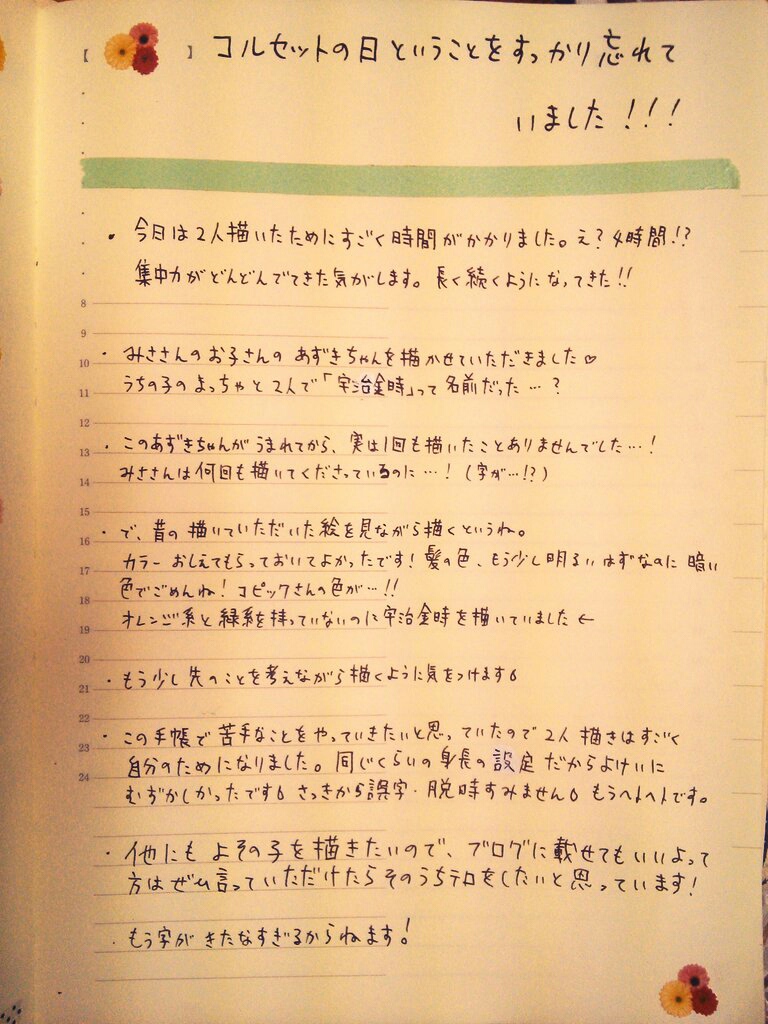 【 】 コルセットの日ということをすっかり忘れて
いました!!!
・今日は2人描いたためにすごく時間がかかりました。え?4時間!?
集中力がどんどんでてきた気がします。長く続くようになってきた!!
8
9
・みささんのお子さんの あずきちゃんを描かせていただきました♡
10
うちの子のよっちゃと2人で「宇治金時」って名前だった…?
11
12
・このあずきちゃんがうまれてから、実は1回も描いたことありませんでした…!
13
みささんは何回も描いてくださっているのに…!(字が…!?)
14
15
・で、昔の描いていただいた絵を見ながら描くというね。
16
カラーおしえてもらっておいてよかったです!髪の色、もう少し明るいはずなのに暗い
17
色でごめんね!コピックさんの色が…!!
18
オレンジ系と緑系を持っていないのに宇治金時を描いていました←
19
20
・もう少し先のことを考えながら描くように気をつけます
21
22
・この手帳で苦手なことをやっていきたいと思っていたので2人描きはすごく
23
自分のためになりました。同じくらいの身長の設定だからよけいに
24
むずかしかったです さっきから誤字・脱時すみません もうヘトヘトです。
・他にもよその子を描きたいので、ブログに載せてもいいよって
方はぜひ言っていただけたらそのうちテロをしたいと思っています!
・もう字がきたなすぎるからねます!